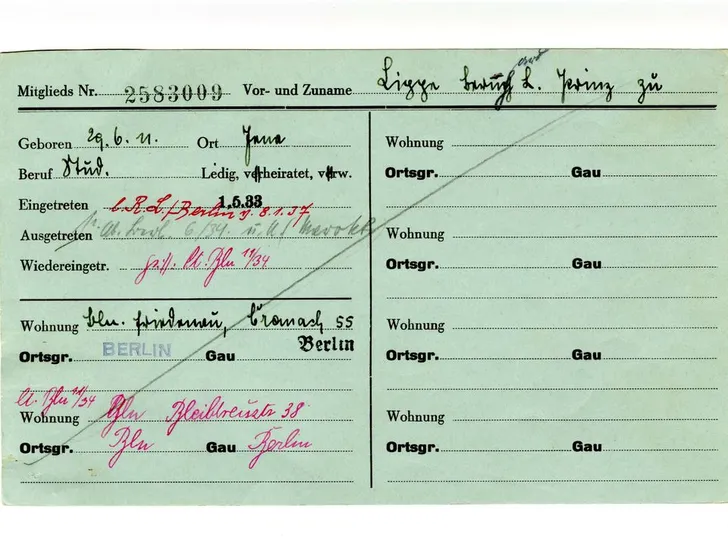 Mitglieds Nr. 2583009 Vor- und Zuname Lippe Prinz zu
Geboren 29.6.11. Ort Jena
Beruf Stud. Ledig, verheiratet, verw.
Eingetreten 1.5.33
Berlin v. 8.1.37
Ausgetreten 6/34. u.
Wiedereingetr. Bln 11/34
Wohnung Bln. Friedenau, 55
Ortsgr. BERLIN Gau Berlin
Bln 11/34
Wohnung Bln Bleibtreustr 38
Ortsgr. Bln Gau Berlin
Wohnung
Ortsgr. Gau
Wohnung
Ortsgr. Gau
Wohnung
Ortsgr. Gau
Wohnung
Ortsgr. Gau